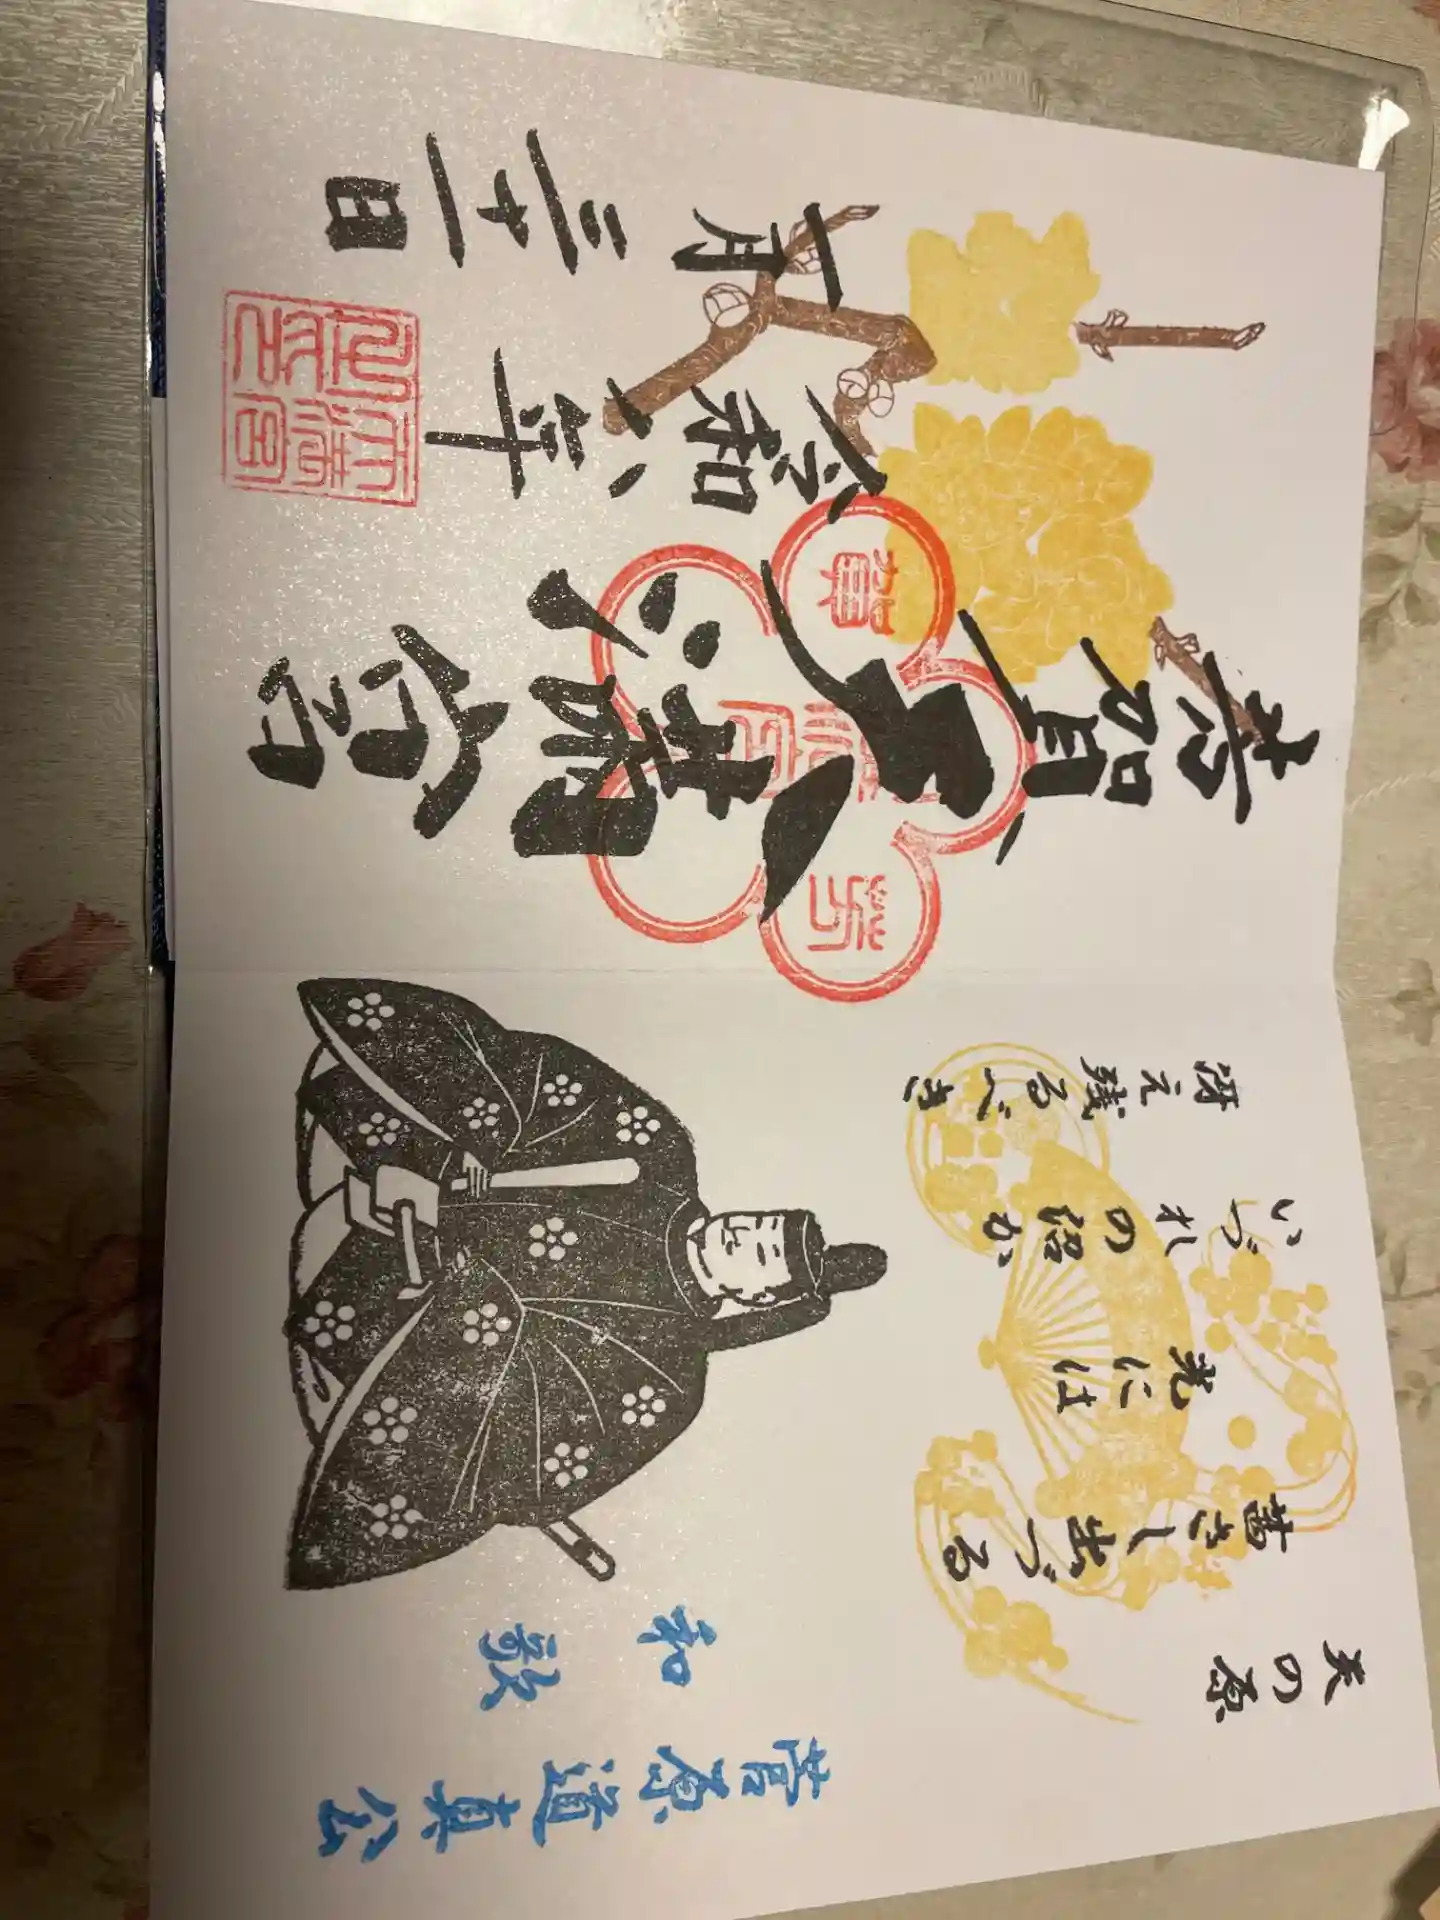 菅原道真公
和歌
天の原
茜さし出づる
光には
いづれの沼か
冴え残るべき
志賀天満宮
令和六年
一月三十一日